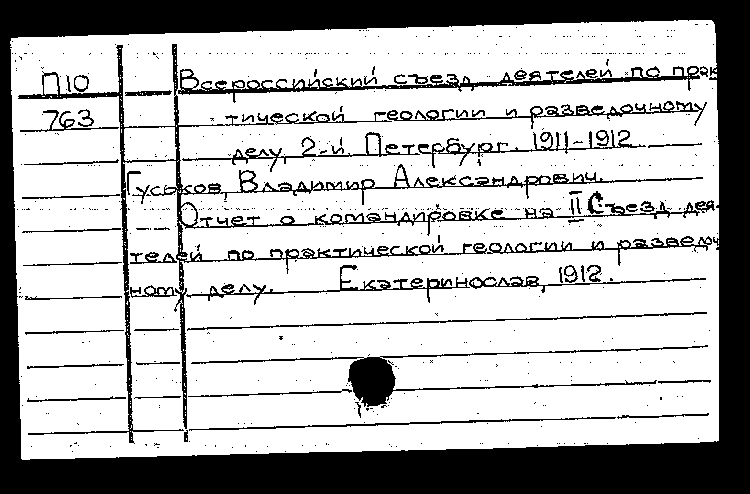 П10 Всероссийский съезд деятелей по прак
763 тической геологии и разведочному
делу, 2-й. Петербург. 1911-1912
Гуськов, Владимир Александрович.
Отчет о командировке на II Съезд дея-
телей по практической геологии и разведоч
ному делу. Екатеринослав, 1912.